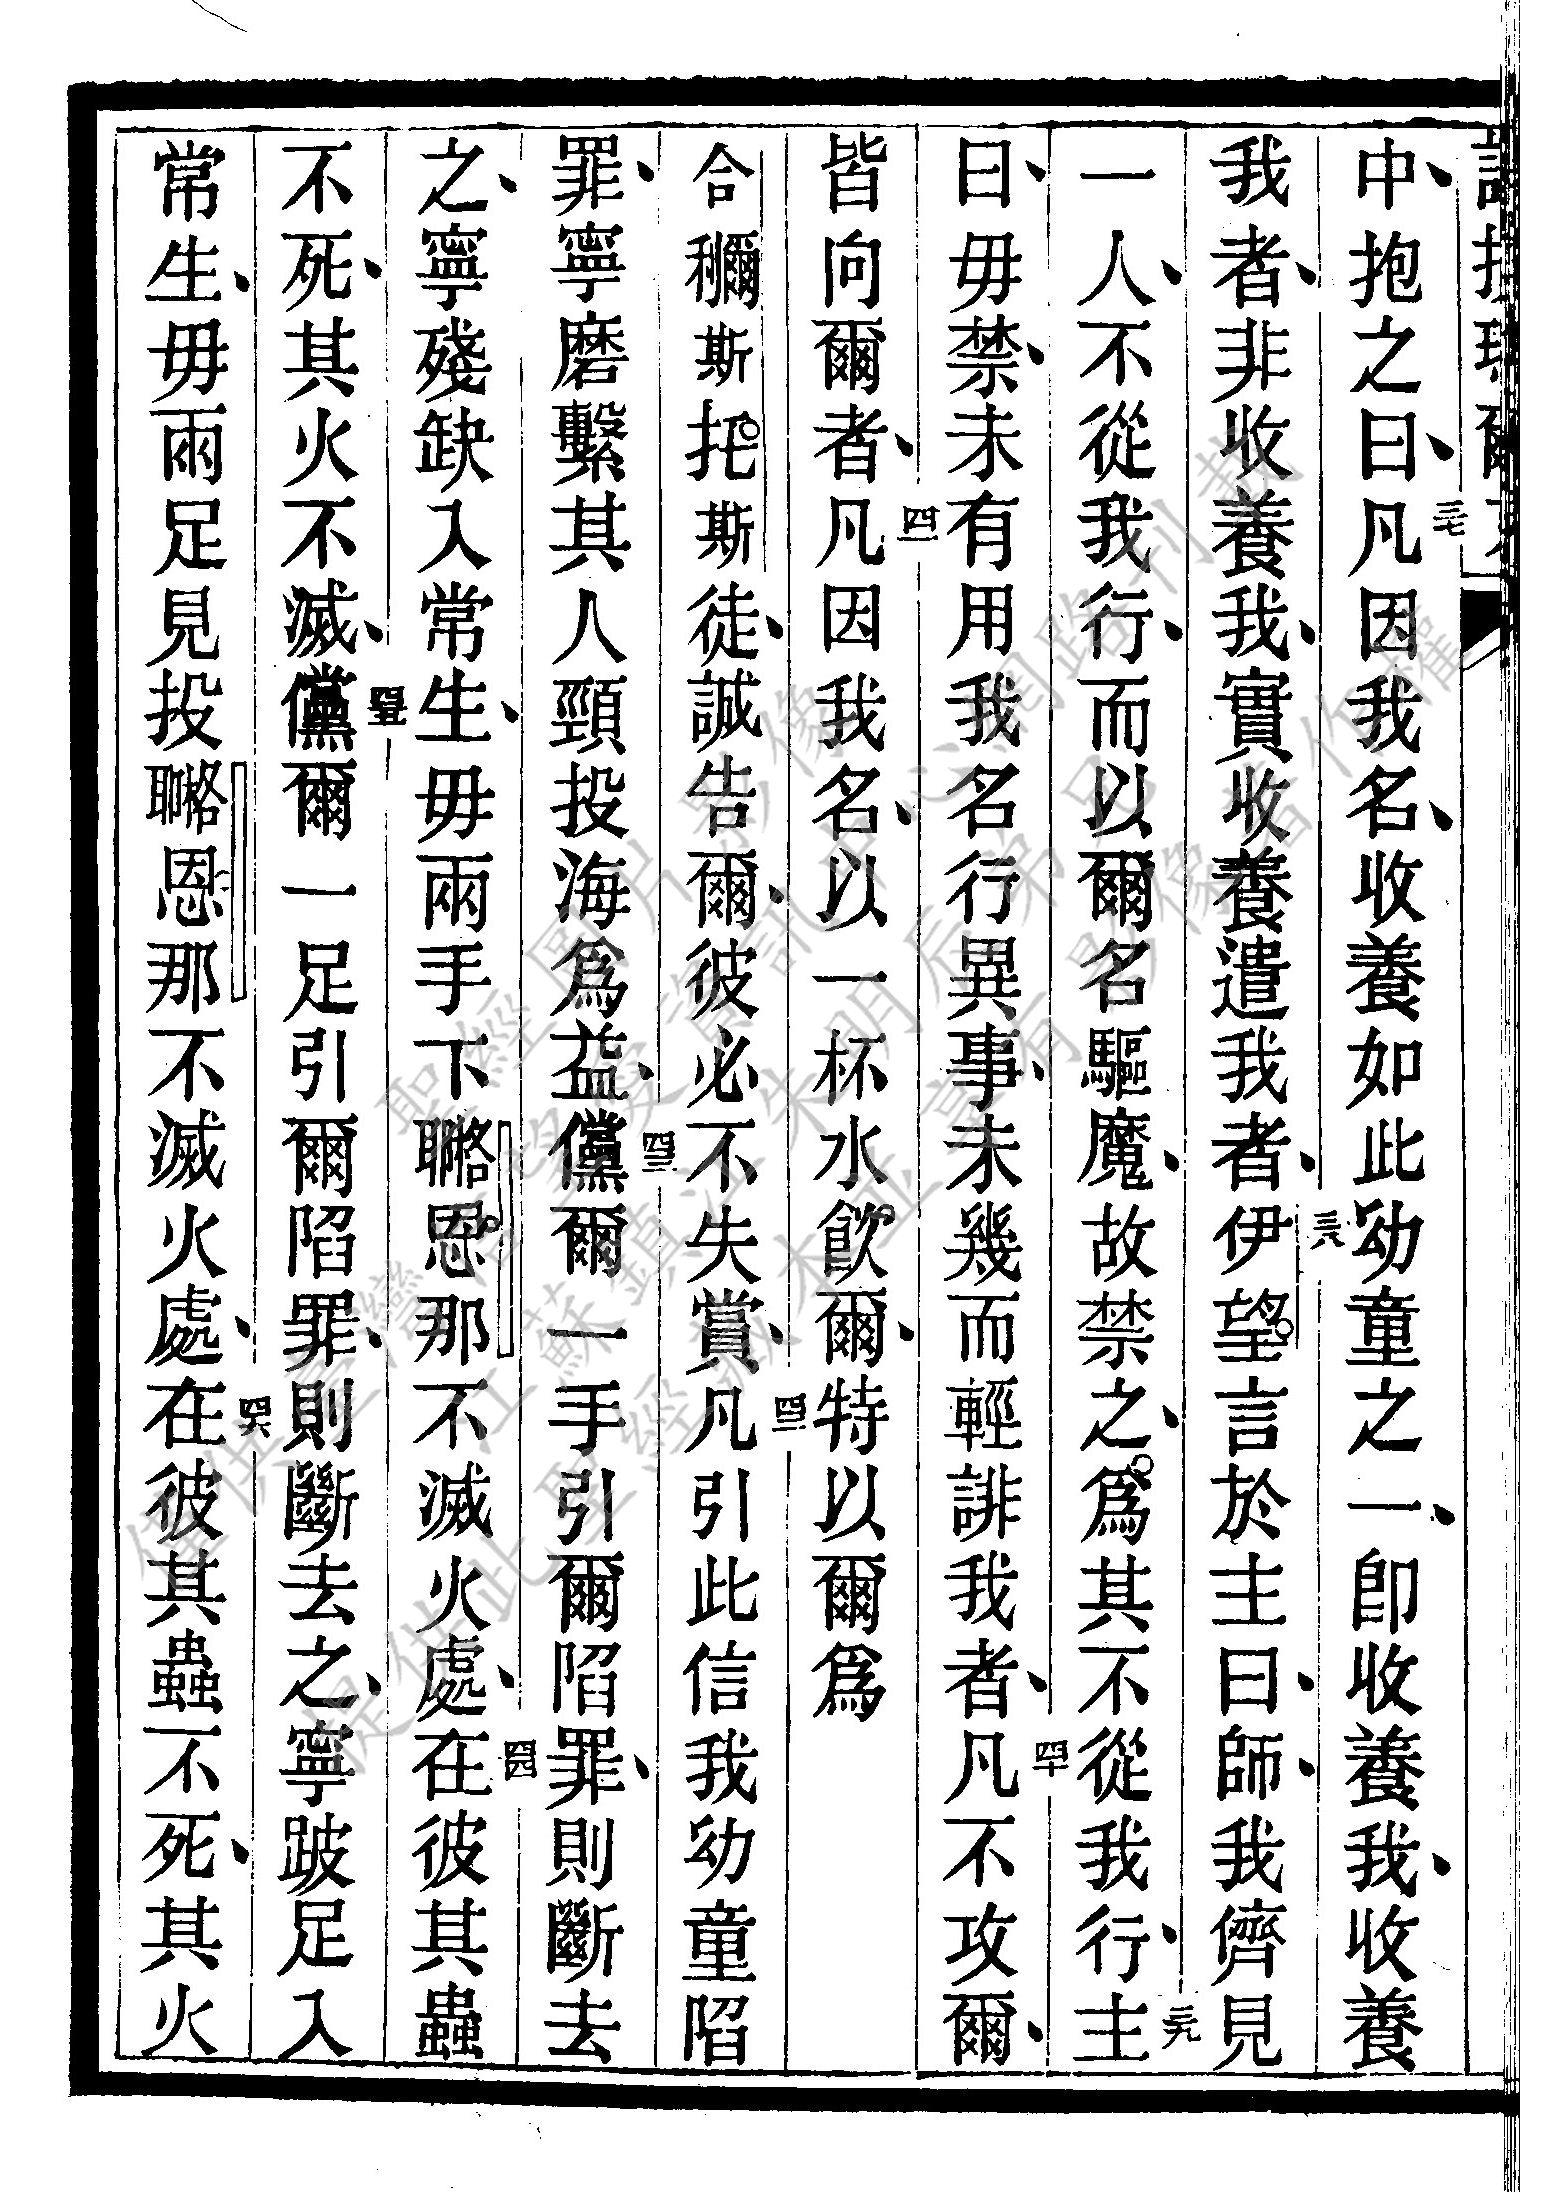 中、抱之曰、三七凡因我名、收養如此幼童之一、卽收養我、收養
我者、非收養我、實收養遣我者、三八伊望。言於主曰、師、我儕見
一人、不從我行、而以爾名驅魔、故禁之、爲。其不從我行、三九主
曰、毋禁、未有用我名行異事、未幾而輕誹我者、四十凡不攻爾、
皆向爾者、四一凡因我名、以一杯水飮。爾、特以爾爲
合穪斯托。斯徒、誠告爾、彼必不失賞、四二凡引此信我幼童陷
罪、寧磨繫其人頸投海爲益、四三儻爾一手引爾陷罪、則斷去
之、寧殘缺入常生、毋兩手下𦗖恩。那不滅火處、四四在彼其蟲
不死、其火不滅、四五儻爾一足引爾陷罪、則斷去之、寧跛足入
常生、毋兩足見投𦗖恩那不滅火處、四六在彼其蟲不死、其火